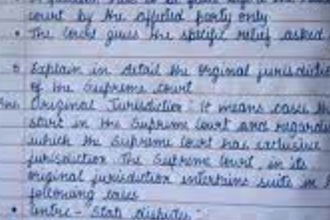 court by the affected party only
• The Court gives the specific relief asked
Explain in detail the original jurisdictio
of the Supreme Court
Ans Original Jurisdiction: It means cases th
start in the Supreme Court and regardi
which the Supreme Court has exclusive
jurisdiction. The Supreme Court, in its
original jurisdiction entertains suits in
following cases
• Centre - State disputes:-